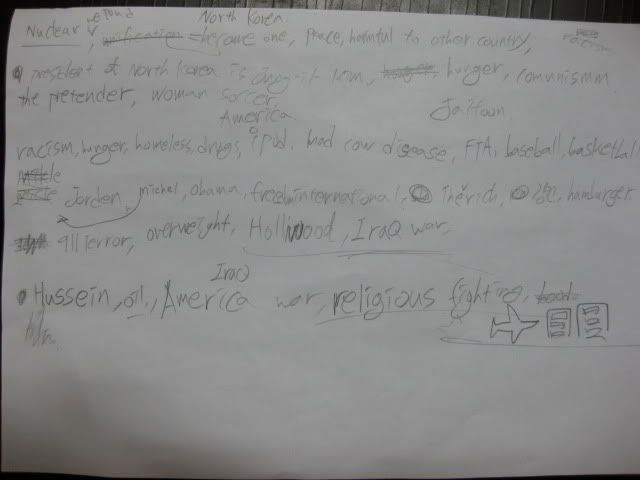 North Korea
Nuclear, unification = become one, peace, harmful to other country,
president of North Korea is jung-il kim, hunger, communismm
the pretender, woman soccer
America
racism, hunger, homeless, drugs, ipod, mad cow disease, FTA, baseball, basketball
Jorden, michel, obama, freedom international, hamburger
911 terror, overweight, Holliwood, IraQ war,
IraQ
Hussein, oil, America war, religious fighting,